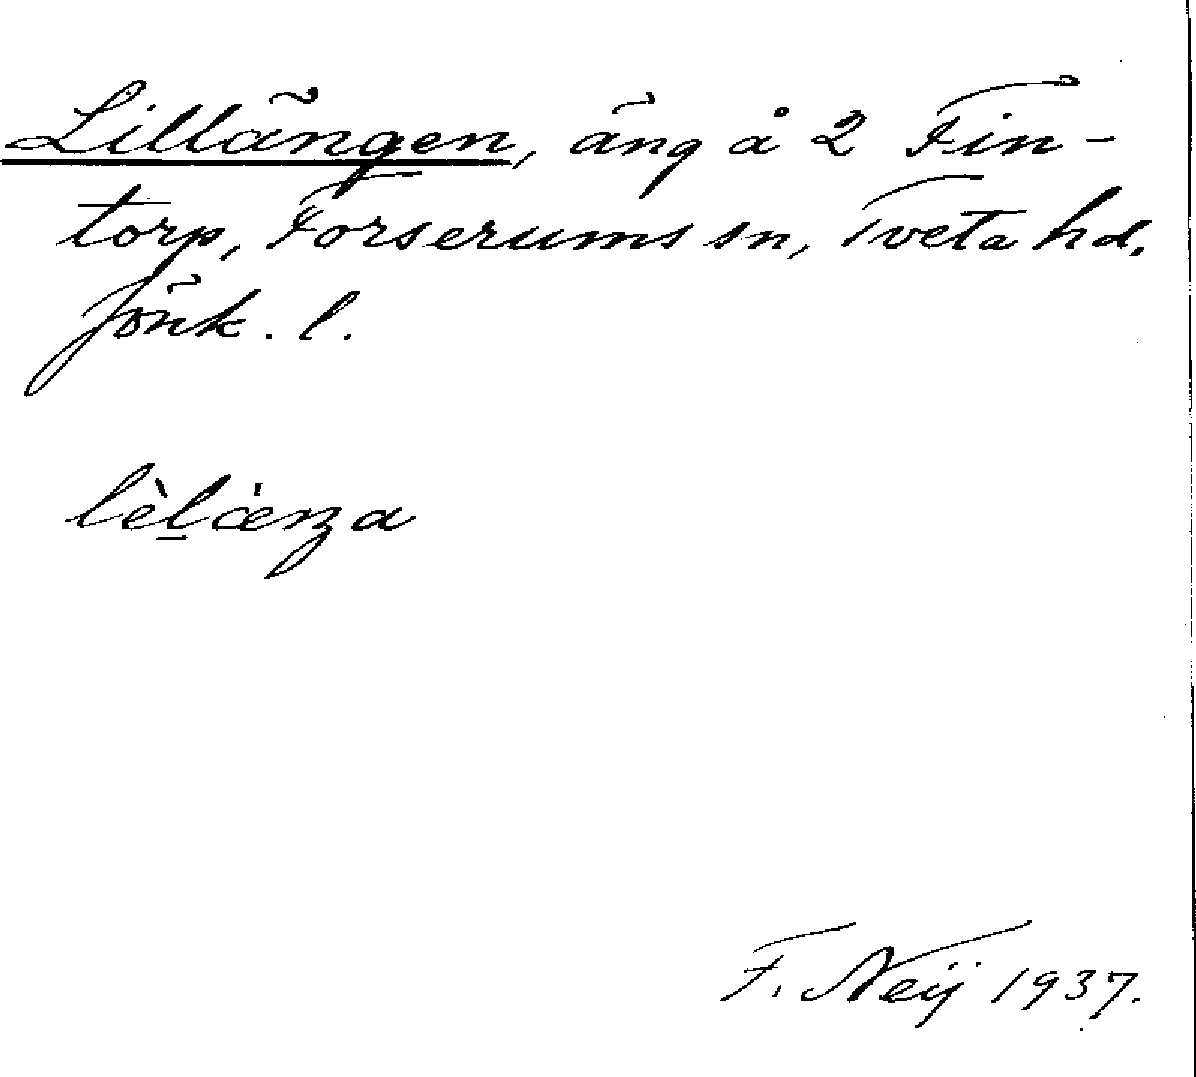 Lillängen, äng å 2 Fin-
torp, Forserums sn, Tveta hd.
Jönk. l.
lèl̠ǽŋa
F. Neij 1937.